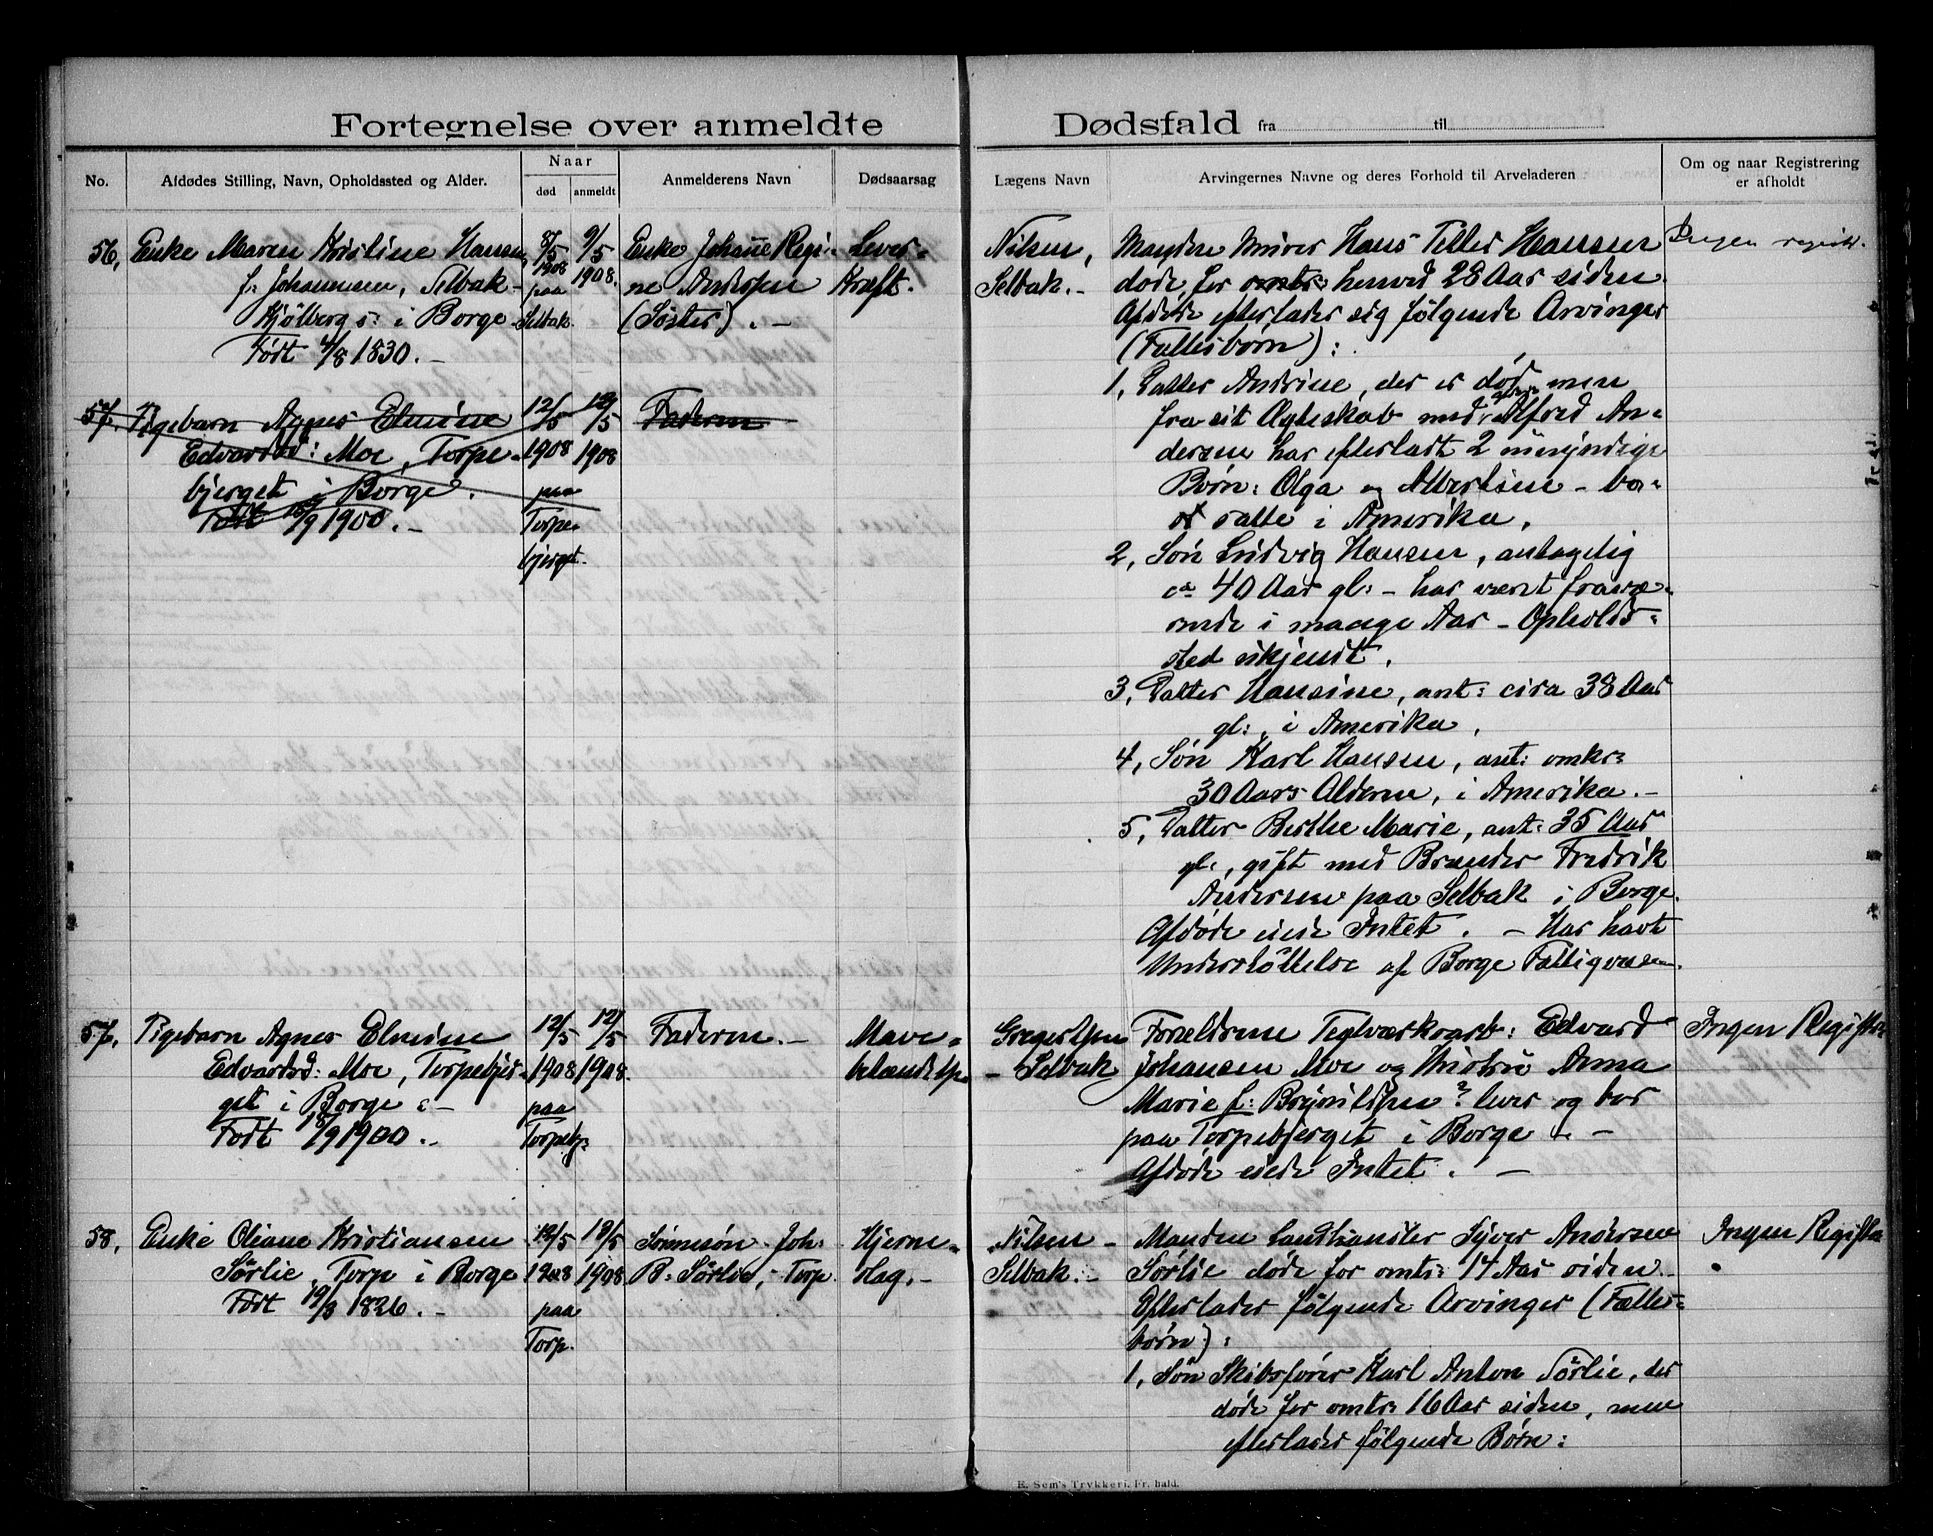 Fortegnelse over anmeldte Dødsfald fra til
No.
Afdødes Stilling, Navn, Opholdssted og Alder.
Naar
død
anmeldt
Anmelderens Navn
Dødsaarsag
Lægens Navn
Arvingernes Navne og deres Forhold til Arveladeren
Om og naar Registrering
er afholdt
56, Enke Maren Kristine Hansen,
f. Johannesen, Selbak
Kjølbergs: i Borge
Født 4/8 1830. –
8/5
1908
paa
Selbak.
9/5
1908.
Enke Johanne Regi-
ne Andersen
(Søster). –
Lever-
Kræft.
Nilsen,
Selbak. –
Manden Murer Hans Teller Hansen
døde for omtr: henved 28 Aar siden.
Afdøde efterlader sig følgende Arvinger
(Fællesbørn):
1, Datter Andrine, der er død, men
fra sit Ægteskab med Alfred An-
dersen har efterladt 2 umyndige
Børn: Olga og Albertine – bo-
satte i Amerika.
2, Søn Ludvig Hansen, antagelig
ca 40 Aar gl: – har været fravæ-
rende i mange Aar – Opholds-
sted ukjendt.
3, Datter Hansine, ant: circa 38 Aar
gl:, i Amerika.
4, Søn Karl Hansen, ant: omkr:
30 Aars Alderen, i Amerika. –
5, Datter Berthe Marie, ant: 35 Aar
gl:, gift med Brænder Fredrik
Andersen paa Selbak i Borge.
Afdøde eiede Intet. – Har havt
Understøttelse af Borge Fattigvæsen.
Ingen regist.
57. Pigebarn Agnes Elmine
Edvardsd: Moe, Torpe-
bjerget i Borge.
Født 18/9 1900. –
12/5
1908
paa
Torpe-
bjerget.
12/5
1908
Faderen
57, Pigebarn Agnes Elmine
Edvardsd: Moe, Torpebjer-
get i Borge. –
Født 18/9 1900. –
12/5
1908
paa
Torpebj:
12/5
1908.
Faderen. –
Mave-
betændelse.
Gregertsen
– Selbak
Forældrene Teglværksarb: Edvard
Johansen Moe og Hustru Anna
Marie f: Brynildsen? lever og bor
paa Torpebjerget i Borge. –
Afdøde eiede Intet. –
Ingen Registr.
58, Enke Oliane Kristiansen
Sørlie, Torp i Borge
Født 19/3 1826. –
12/5
1908
paa
Torp.
13/5
1908
Sønnesøn Joh:
B: Sørlie, Torp.
Hjerne-
slag. –
Nilsen –
Selbak. –
Manden Landhandler Syver Andersen
Sørlie døde for omtr: 14 Aar siden.
Efterlader følgende Arvinger (Fælles-
børn):
1, Søn Skibsfører Karl Anton Sørlie, der
døde for omtr: 16 Aar siden, men
efterlader følgende Børn:
Ingen Registr.
E. Sem's Trykkeri, Fr. hald.